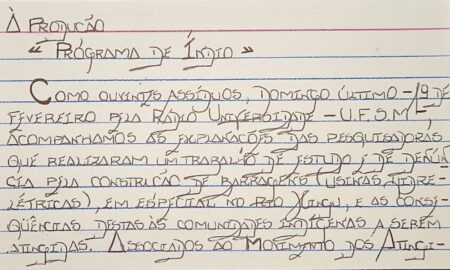 À PRODUÇÃO
“ PROGRAMA DE ÍNDIO ”
COMO OUVINTES ASSÍDUOS, DOMINGO ÚLTIMO - 19 DE
FEVEREIRO PELA RÁDIO UNIVERSIDADE - U.F.S.M -,
ACOMPANHAMOS AS EXPLANAÇÕES DAS PESQUISADORAS
QUE REALIZARAM UM TRABALHO DE ESTUDO, DE DENÚN
CIA PELA CONSTRUÇÃO DE BARRAGENS (USINAS HIDRE-
LÉTRICAS), EM ESPECIAL NO RIO XINGU, E AS CONSE-
QÜÊNCIAS DESTAS ÀS COMUNIDADES INDÍGENAS A SEREM
ATINGIDAS. ASSOCIADOS AO MOVIMENTO DOS ATINGI-